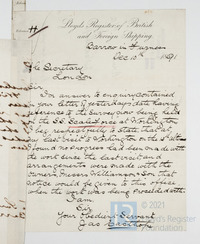 Lloyd's Register of British
and Foreign Shipping.
Barrow in Furness
Dec 10th 1891
The Secretary
London
Sir
In answer to enquiry contained
in your letter of yesterday's date having
reference to the Survey now being held
on the SS at Workington
I beg respectfully to state that at
my last visit to Workington on the
no progress had been made with
the work since the last visit and
arrangements were made with the
owners, Messrs Williamson & Son that
notice should be given to this office
when the work was being proceeded with.
I am
Sir
Your Obedient Servant
Jas
© 2021
Lloyd's Register
Foundation